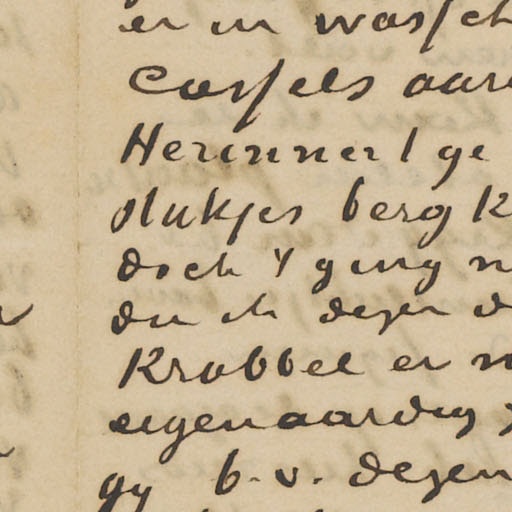 er in was
Cassels aar
Herinnert ge
stukjes berg k
doch 't ging n
die ik dezen
Krabbel er
eigenaardig
gij b.v. dezen